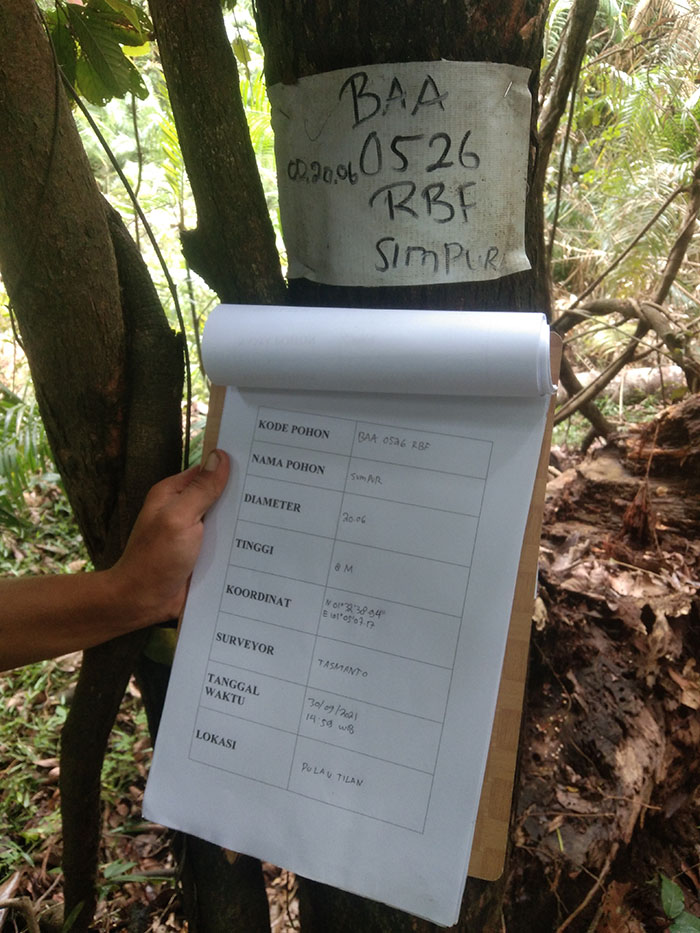 BAA
0526
00.20.06
RBF
SIMPUR
KODE POHON BAA 0526 RBF
NAMA POHON SIMPUR
DIAMETER 20.06
TINGGI 8 M
KOORDINAT N 01°32'38.94"
E 101°05'07.17
SURVEYOR TASMANTO
TANGGAL 30/09/2021
WAKTU 14:59 WIB
LOKASI PULAU TILAN